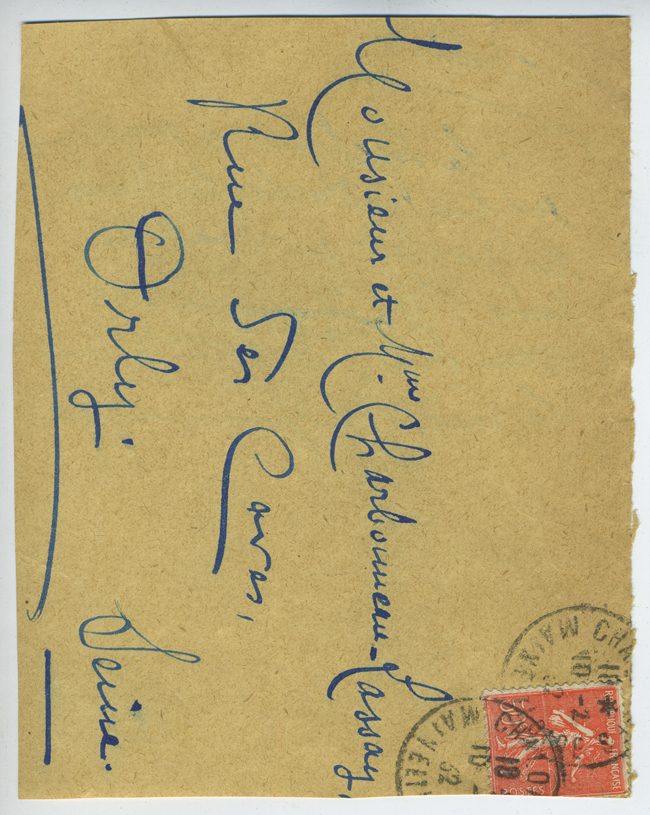 Monsieur et Mme Charbonneau-Lassay,
Rue des Caves,
Orly.
Seine.
RÉPUBLIQUE FRANÇAISE
POSTES
18
10 -2
32
18
10
32